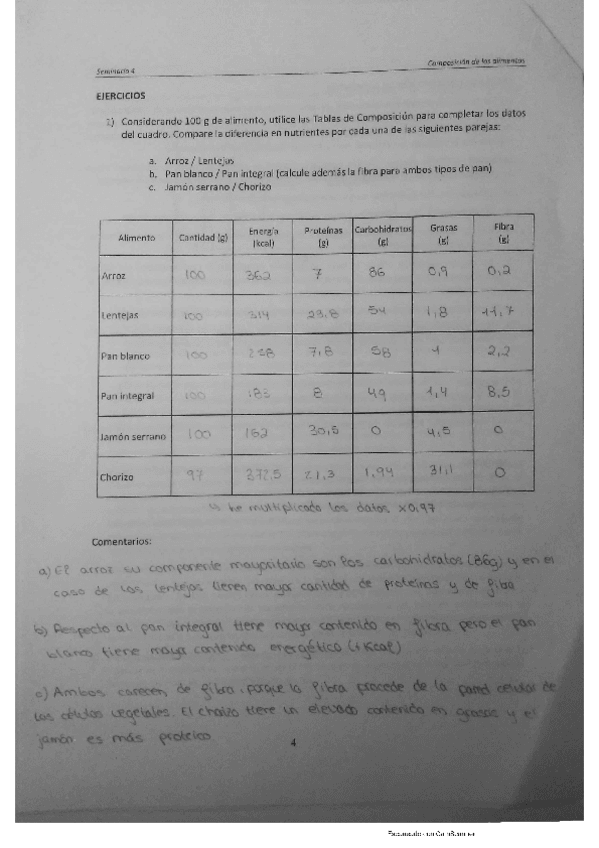 Seminario 4 Composición de los alimentos
EJERCICIOS
1) Considerando 100 g de alimento, utilice las Tablas de Composición para completar los datos
del cuadro. Compare la diferencia en nutrientes por cada una de las siguientes parejas:
a. Arroz / Lentejas
b. Pan blanco / Pan integral (calcule además la fibra para ambos tipos de pan)
c. Jamón serrano / Chorizo
Alimento Cantidad (g) Energía (kcal) Proteínas (g) Carbohidratos (g) Grasas (g) Fibra (g)
Arroz 100 362 7 86 0,9 0,2
Lentejas 100 314 23,8 54 1,8 11,7
Pan blanco 100 258 7,8 58 1 2,2
Pan integral 100 183 8 49 1,4 8,5
Jamón serrano 100 162 30,5 0 4,5 0
Chorizo 97 372,5 21,3 1,94 31,1 0
he multiplicado los datos x0,97
Comentarios:
a) El arroz su componente mayoritario son los carbohidratos (86g) y en el
caso de las lentejas tienen mayor cantidad de proteínas y de fibra
b) Respecto al pan integral tiene mayor contenido en fibra pero el pan
blanco tiene mayor contenido energético (+Kcal)
c) Ambos carecen de fibra, porque la fibra procede de la pared celular de
las células vegetales. El chorizo tiene un elevado contenido en grasas y el
jamón es más proteico
4
Escaneado con CamScanner